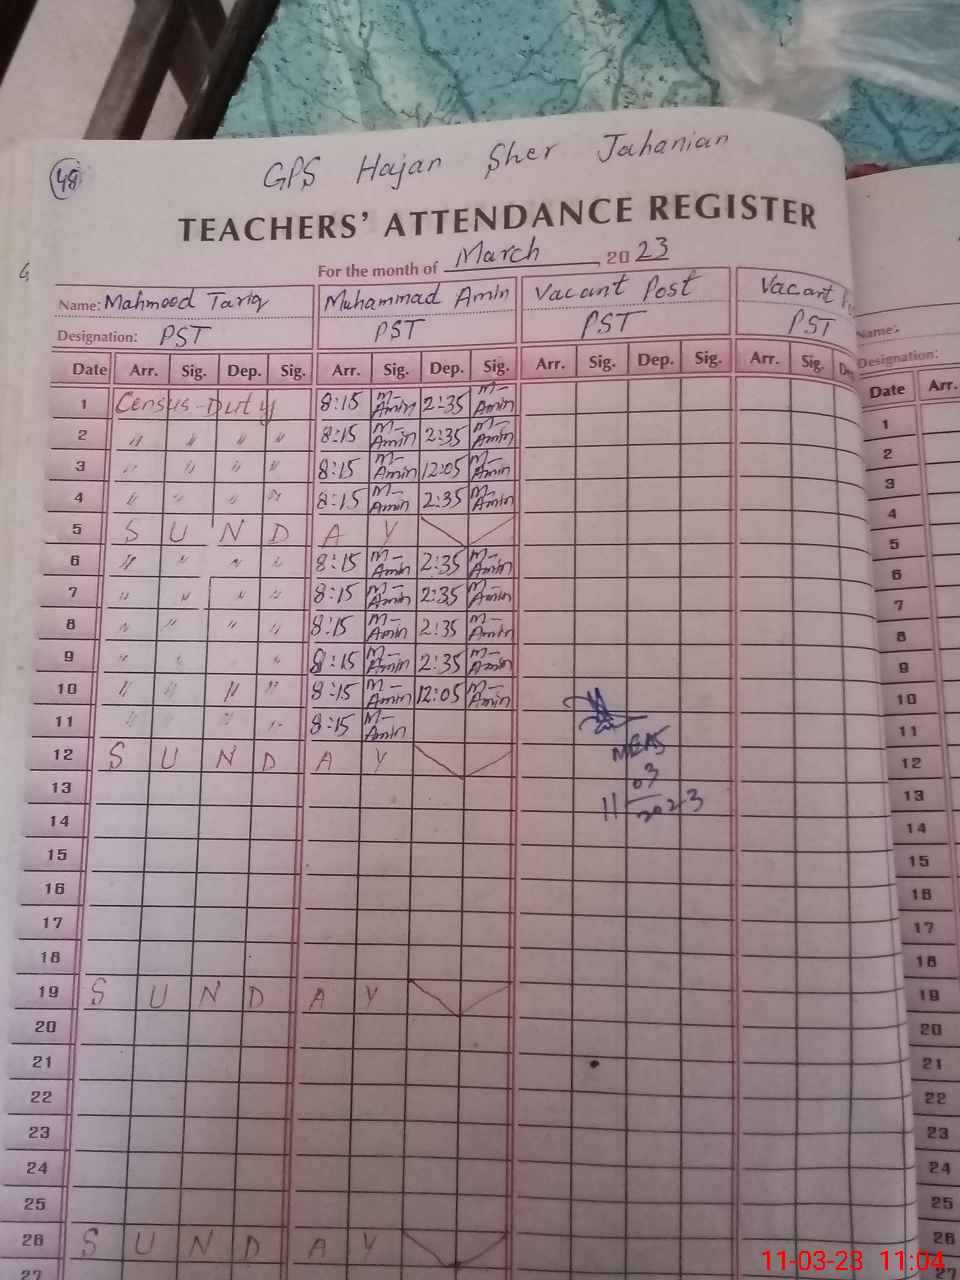 48
GPS Hajan Sher Jahanian
TEACHERS' ATTENDANCE REGISTER
For the month of March 2023
Name: Mahmood Tariq Muhammad Amin Vacant Post Vacant
Designation: PST PST PST PST
Date Arr. Sig. Dep. Sig. Arr. Sig. Dep. Sig. Arr. Sig. Dep. Sig. Arr. Sig.
1 Census-Duty 8:15 M-Amin 2:35 M-Amin
2 " " " " 8:15 M-Amin 2:35 M-Amin
3 " " " " 8:15 M-Amin 12:05 M-Amin
4 " " " " 8:15 M-Amin 2:35 M-Amin
5 S U N D A Y
6 " " " " 8:15 M-Amin 2:35 M-Amin
7 " " " " 8:15 M-Amin 2:35 M-Amin
8 " " " " 8:15 M-Amin 2:35 M-Amin
9 " " " 8:15 M-Amin 2:35 M-Amin
10 " " " " 8:15 M-Amin 12:05 M-Amin
11 " " " " 8:15 M-Amin
12 S U N D A Y
MEAS
13
11 03
2023
14
15
16
17
18
19 S U N D A Y
20
21
22
23
24
25
26 S U N D A Y
27
Name:
Designation:
Date Arr.
1
2
3
4
5
6
7
8
9
10
11
12
13
14
15
16
17
18
19
20
21
22
23
24
25
26
27
11-03-23 11:04